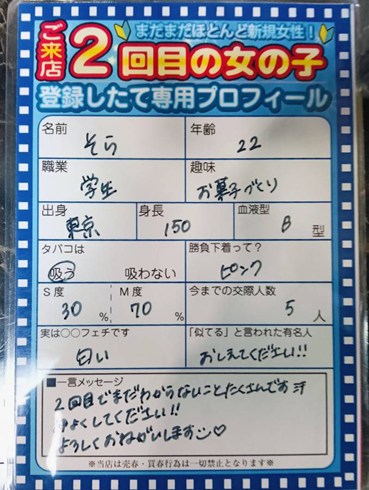 まだまだほとんど新規女性！
ご来店2回目の女の子
登録したて専用プロフィール
名前 そら
年齢 22
職業 学生
趣味 お菓子づくり
出身 東京
身長 150
血液型 B 型
タバコは 吸う 吸わない
勝負下着って？ ピンク
S度 30 %
M度 70 %
今までの交際人数 5 人
実は○○フェチです 匂い
「似てる」と言われた有名人 おしえてください!!
■一言メッセージ
2回目でまだわからないことたくさんです
くしてください!!
よろしくおねがいします
※当店は売春・買春行為は一切禁止となります※